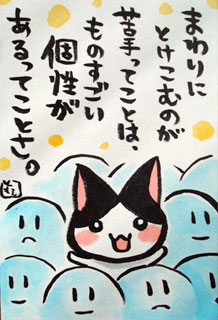 まわりに
とけこむのが
苦手ってことは、
ものすごい
個性が
あるってことさ。